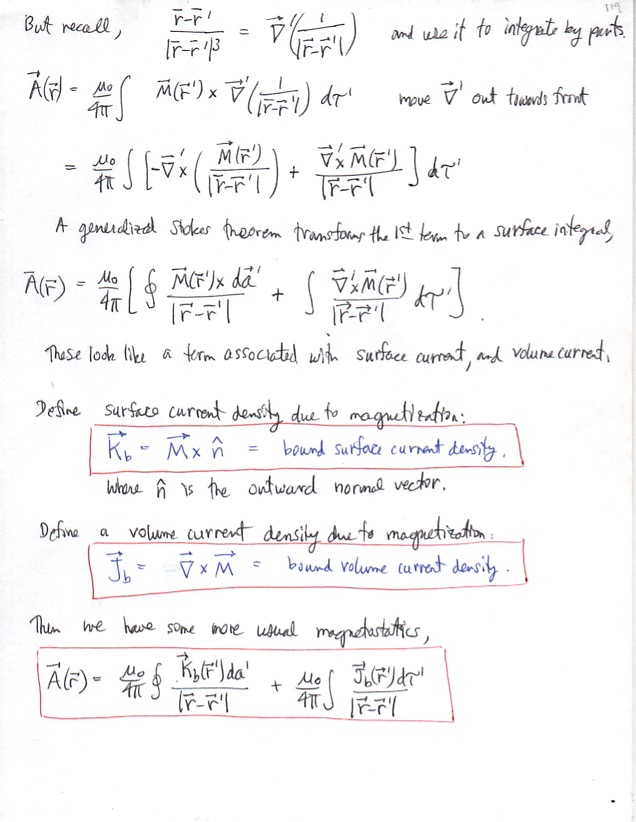 119
But recall, (r̄-r̄')/|r̄-r̄'|³ = ∇⃗'(1/|r̄-r̄'|) and use it to integrate by parts.
A⃗(r̄) = μ₀/4π ∫ M⃗(r̄') × ∇⃗'(1/|r̄-r̄'|) dτ' move ∇⃗' out towards front
= μ₀/4π ∫ [-∇⃗'×(M⃗(r̄')/|r̄-r̄'|) + ∇⃗'×M⃗(r̄')/|r̄-r̄'|] dτ'
A generalized Stokes theorem transforms the 1st term to a surface integral,
A̅(r̄) = μ₀/4π [∮ M⃗(r̄')×da⃗'/|r̄-r̄'| + ∫ ∇⃗'×M⃗(r̄')/|r⃗-r⃗'| dτ'].
These look like a term associated with surface current, and volume current.
Define surface current density due to magnetization:
K⃗_b = M⃗ × n̂ = bound surface current density.
where n̂ is the outward normal vector.
Define a volume current density due to magnetization:
J⃗_b = ∇⃗ × M⃗ = bound volume current density.
Then we have some more usual magnetostatics,
A⃗(r̄) = μ₀/4π ∮ K⃗_b(r̄')da'/|r̄-r̄'| + μ₀/4π ∫ J⃗_b(r̄')dτ'/|r̄-r̄'|